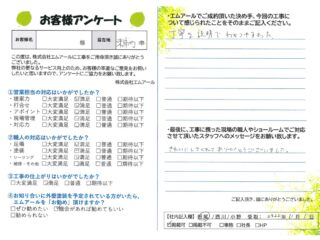 お客様アンケート
お客様名
様
居住区
市
この度は、株式会社エムアールに工事をご用命頂き誠にありがとうございました。
弊社の更なるサービス向上のため、お客様の率直なご意見をお伺いしたいと思いますので、アンケートにご協力をお願い致します。
株式会社エムアール
①営業担当の対応はいかがでしたか?
・提案力 □大変満足 ☑満足 □普通 □期待以下
・打合せ □大変満足 ☑満足 □普通 □期待以下
・アポイント □大変満足 ☑満足 □普通 □期待以下
・現場管理 □大変満足 ☑満足 □普通 □期待以下
・対応力 □大変満足 ☑満足 □普通 □期待以下
②職人の対応はいかがでしたか?
・足場 □大変満足 ☑満足 □普通 □期待以下
・塗装 □大変満足 ☑満足 □普通 □期待以下
・シーリング □大変満足 □満足 □普通 □期待以下
・補修・その他 □大変満足 □満足 □普通 □期待以下
③工事の仕上がりはいかがでしたか?
□大変満足 ☑満足 □普通 □期待以下
④お知り合いに外壁塗装を予定されている方がいたら、
エムアールを「お勧め」頂けますか?
□ぜひ勧めたい ☑機会があれば勧めてもいい
□勧められない
・エムアールでご成約頂いた決め手、今回の工事に
ついて感じられたことをそのままご記入ください。
丁寧な説明でわかりやすかった。
・最後に、工事に携った現場の職人やショールームでご対応
させて頂いたスタッフへのメッセージをお願い致します。
きれいにしてくれてありがとうございました。
ご記入頂き、誠にありがとうございました。
【社内記入欄】
☑掲載可 □掲載不可 □事務 □社長 □HP